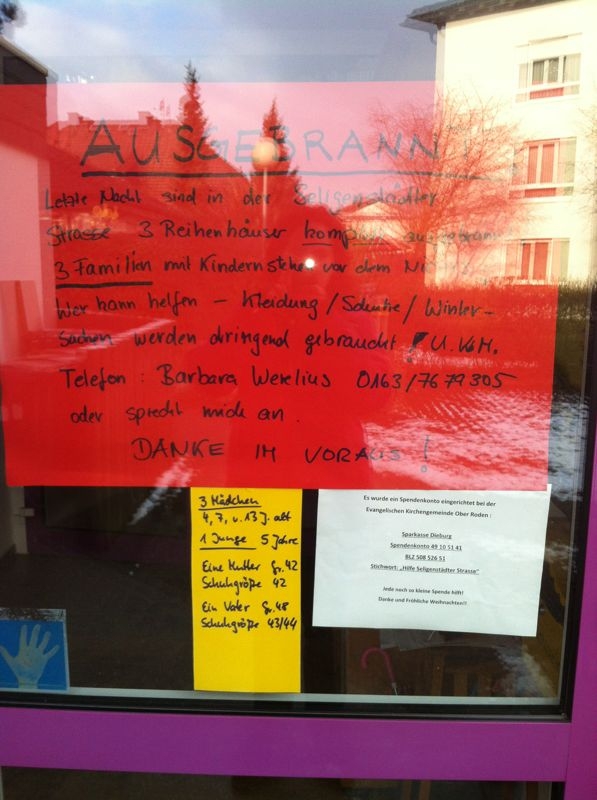 AUSGEBRANNT
Letzte Nacht sind in der Seligenstädter
Strasse 3 Reihenhäuser komplett ausgebrannt
3 Familien mit Kindern stehen vor dem
Wer kann helfen – Kleidung / Schuhe / Winter-
sachen werden dringend gebraucht! U.V.M.
Telefon : Barbara Werelius 0163/7679305
oder sprecht mich an.
DANKE IM VORAUS!
3 Mädchen
4, 7, u. 13 J. alt
1 Junge 5 Jahre
Eine Mutter Gr. 42
Schuhgröße 42
Ein Vater Gr. 48
Schuhgröße 43/44
Es wurde ein Spendenkonto eingerichtet bei der
Evangelischen Kirchengemeinde Ober Roden :
Sparkasse Dieburg
Spendenkonto 49 10 51 41
BLZ 508 526 51
Stichwort: „Hilfe Seligenstädter Strasse"
Jede noch so kleine Spende hilft!
Danke und Fröhliche Weihnachten!!